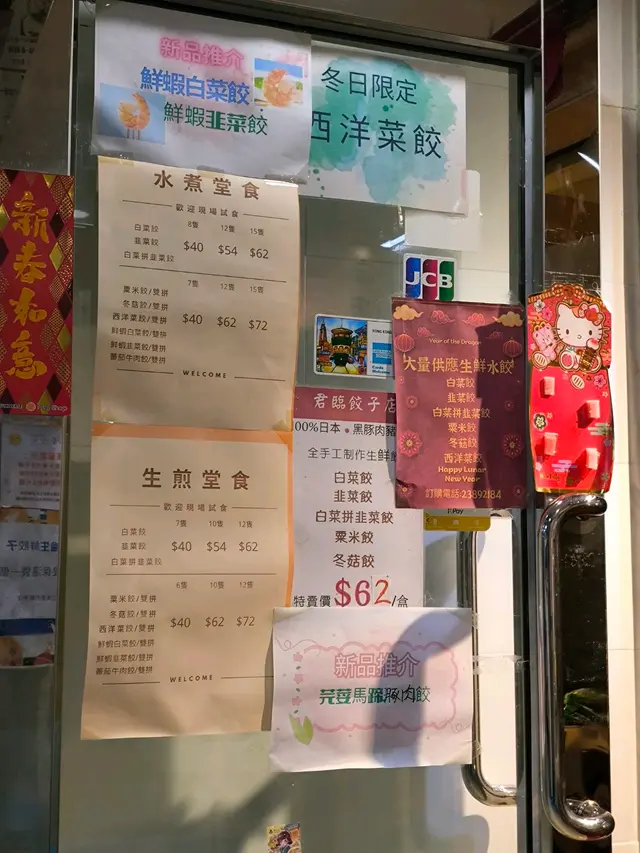 新品推介
鮮蝦白菜餃
鮮蝦韭菜餃
冬日限定
西洋菜餃
新春如意
水煮堂食
歡迎現場試食
8隻 12隻 15隻
白菜餃
韭菜餃
白菜拼韭菜餃
$40 $54 $62
7隻 12隻 15隻
粟米餃/雙拼
冬菇餃/雙拼
西洋菜餃/雙拼
鮮蝦白菜餃/雙拼
鮮蝦韭菜餃/雙拼
蕃茄牛肉餃/雙拼
$40 $62 $72
WELCOME
生煎堂食
歡迎現場試食
7隻 10隻 12隻
白菜餃
韭菜餃
白菜拼韭菜餃
$40 $54 $62
6隻 10隻 12隻
粟米餃/雙拼
冬菇餃/雙拼
西洋菜餃/雙拼
鮮蝦白菜餃/雙拼
鮮蝦韭菜餃/雙拼
蕃茄牛肉餃/雙拼
$40 $62 $72
WELCOME
JCB
君臨餃子店
00%日本 黑豚肉豬
全手工制作生鮮
白菜餃
韭菜餃
白菜拼韭菜餃
粟米餃
冬菇餃
特賣價 $62/盒
Year of the Dragon
大量供應生鮮水餃
白菜餃
韭菜餃
白菜拼韭菜餃
粟米餃
冬菇餃
西洋菜餃
Happy Lunar
New Year
訂購電話:23892184
新品推介
芫荽馬蹄豚肉餃